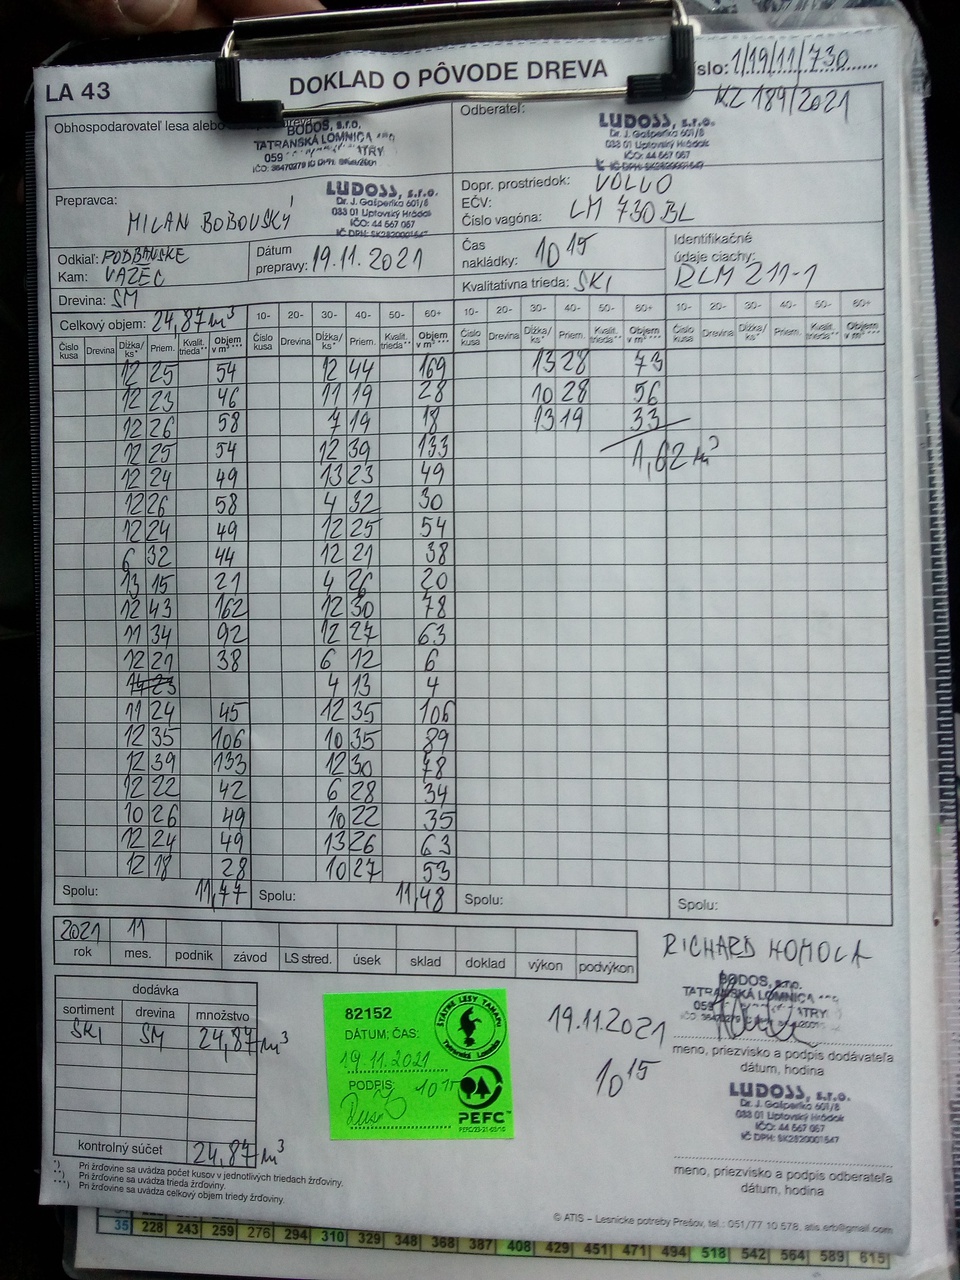 LA 43
DOKLAD O PÔVODE DREVA
íslo: 1/19/11/730
KZ 189/2021
Obhospodarovateľ lesa alebo
BODOS, s.r.o.
TATRANSKÁ LOMNICA
059 TATRY
Odberateľ:
LUDOSS, s.r.o.
Dr. J. Gašperíka 601/8
033 01 Liptovský Hrádok
IČO: 44 567 067
IČ DPH: SK2820001547
Prepravca:
MILAN BOBOVSKÝ
LUDOSS, s.r.o.
Dr. J. Gašperíka 601/8
033 01 Liptovský Hrádok
IČO: 44 567 067
Dopr. prostriedok: VOLVO
EČV:
Číslo vagóna: LM 730 BL
Odkiaľ: PODBANSKE
Kam: VAZEC
Dátum
prepravy: 19.11.2021
Čas
nakládky: 10 15
Identifikačné
údaje ciachy:
RLM 211-1
Drevina: SM
Kvalitatívna trieda: SKI
Celkový objem: 24,87 m³
10- 20- 30- 40- 50- 60+ 10- 20- 30- 40- 50- 60+ 10- 20- 30- 40- 50- 60+
Číslo kusa Drevina Dĺžka/ ks* Priem. Kvalit. trieda** Objem v m³ *** Číslo kusa Drevina Dĺžka/ ks* Priem. Kvalit. trieda** Objem v m³ *** Číslo kusa Drevina Dĺžka/ ks* Priem. Kvalit. trieda** Objem v m³ *** Číslo kusa Drevina Dĺžka/ ks* Priem. Kvalit. trieda** Objem v m³ ***
12 25 54 12 44 169 13 28 73
12 23 46 11 19 28 10 28 56
12 26 58 7 19 18 13 19 33
12 25 54 12 39 133 1,62 m³
12 24 49 13 23 49
12 26 58 4 32 30
12 24 49 12 25 54
6 32 44 12 21 38
13 15 21 4 26 20
12 43 162 12 30 78
11 34 92 12 27 63
12 21 38 6 12 6
14 23 4 13 4
11 24 45 12 35 106
12 35 106 10 35 89
12 39 133 12 30 78
12 22 42 6 28 34
10 26 49 10 22 35
12 24 49 13 26 63
12 18 28 10 27 53
Spolu: 11,77 Spolu: 11,48 Spolu: Spolu:
2021 11
rok mes. podnik závod LS stred. úsek sklad doklad výkon podvýkon
RICHARD HOMOLA
BODOS, s.r.o.
TATRANSKÁ LOMNICA
059 TATRY
meno, priezvisko a podpis dodávateľa
dátum, hodina
dodávka
sortiment drevina množstvo
SKI SM 24,87 m³
kontrolný súčet 24,87 m³
82152
DÁTUM; ČAS:
19.11.2021
PODPIS: 10 15
ŠTÁTNE LESY TANAPU
Tatranská Lomnica
PEFC
19.11.2021
10 15
LUDOSS, s.r.o.
Dr. J. Gašperíka 601/8
033 01 Liptovský Hrádok
IČO: 44 567 067
IČ DPH: SK2820001547
meno, priezvisko a podpis odberateľa
dátum, hodina
*) Pri žrďovine sa uvádza počet kusov v jednotlivých triedach žrďoviny.
**) Pri žrďovine sa uvádza trieda žrďoviny.
***) Pri žrďovine sa uvádza celkový objem triedy žrďoviny.
© ATIS – Lesnícke potreby Prešov, tel.: 051/77 10 578, atis.erb@gmail.com
35 228 243 259 276 294 310 329 348 368 387 408 429 451 471 494 518 542 564 589 615